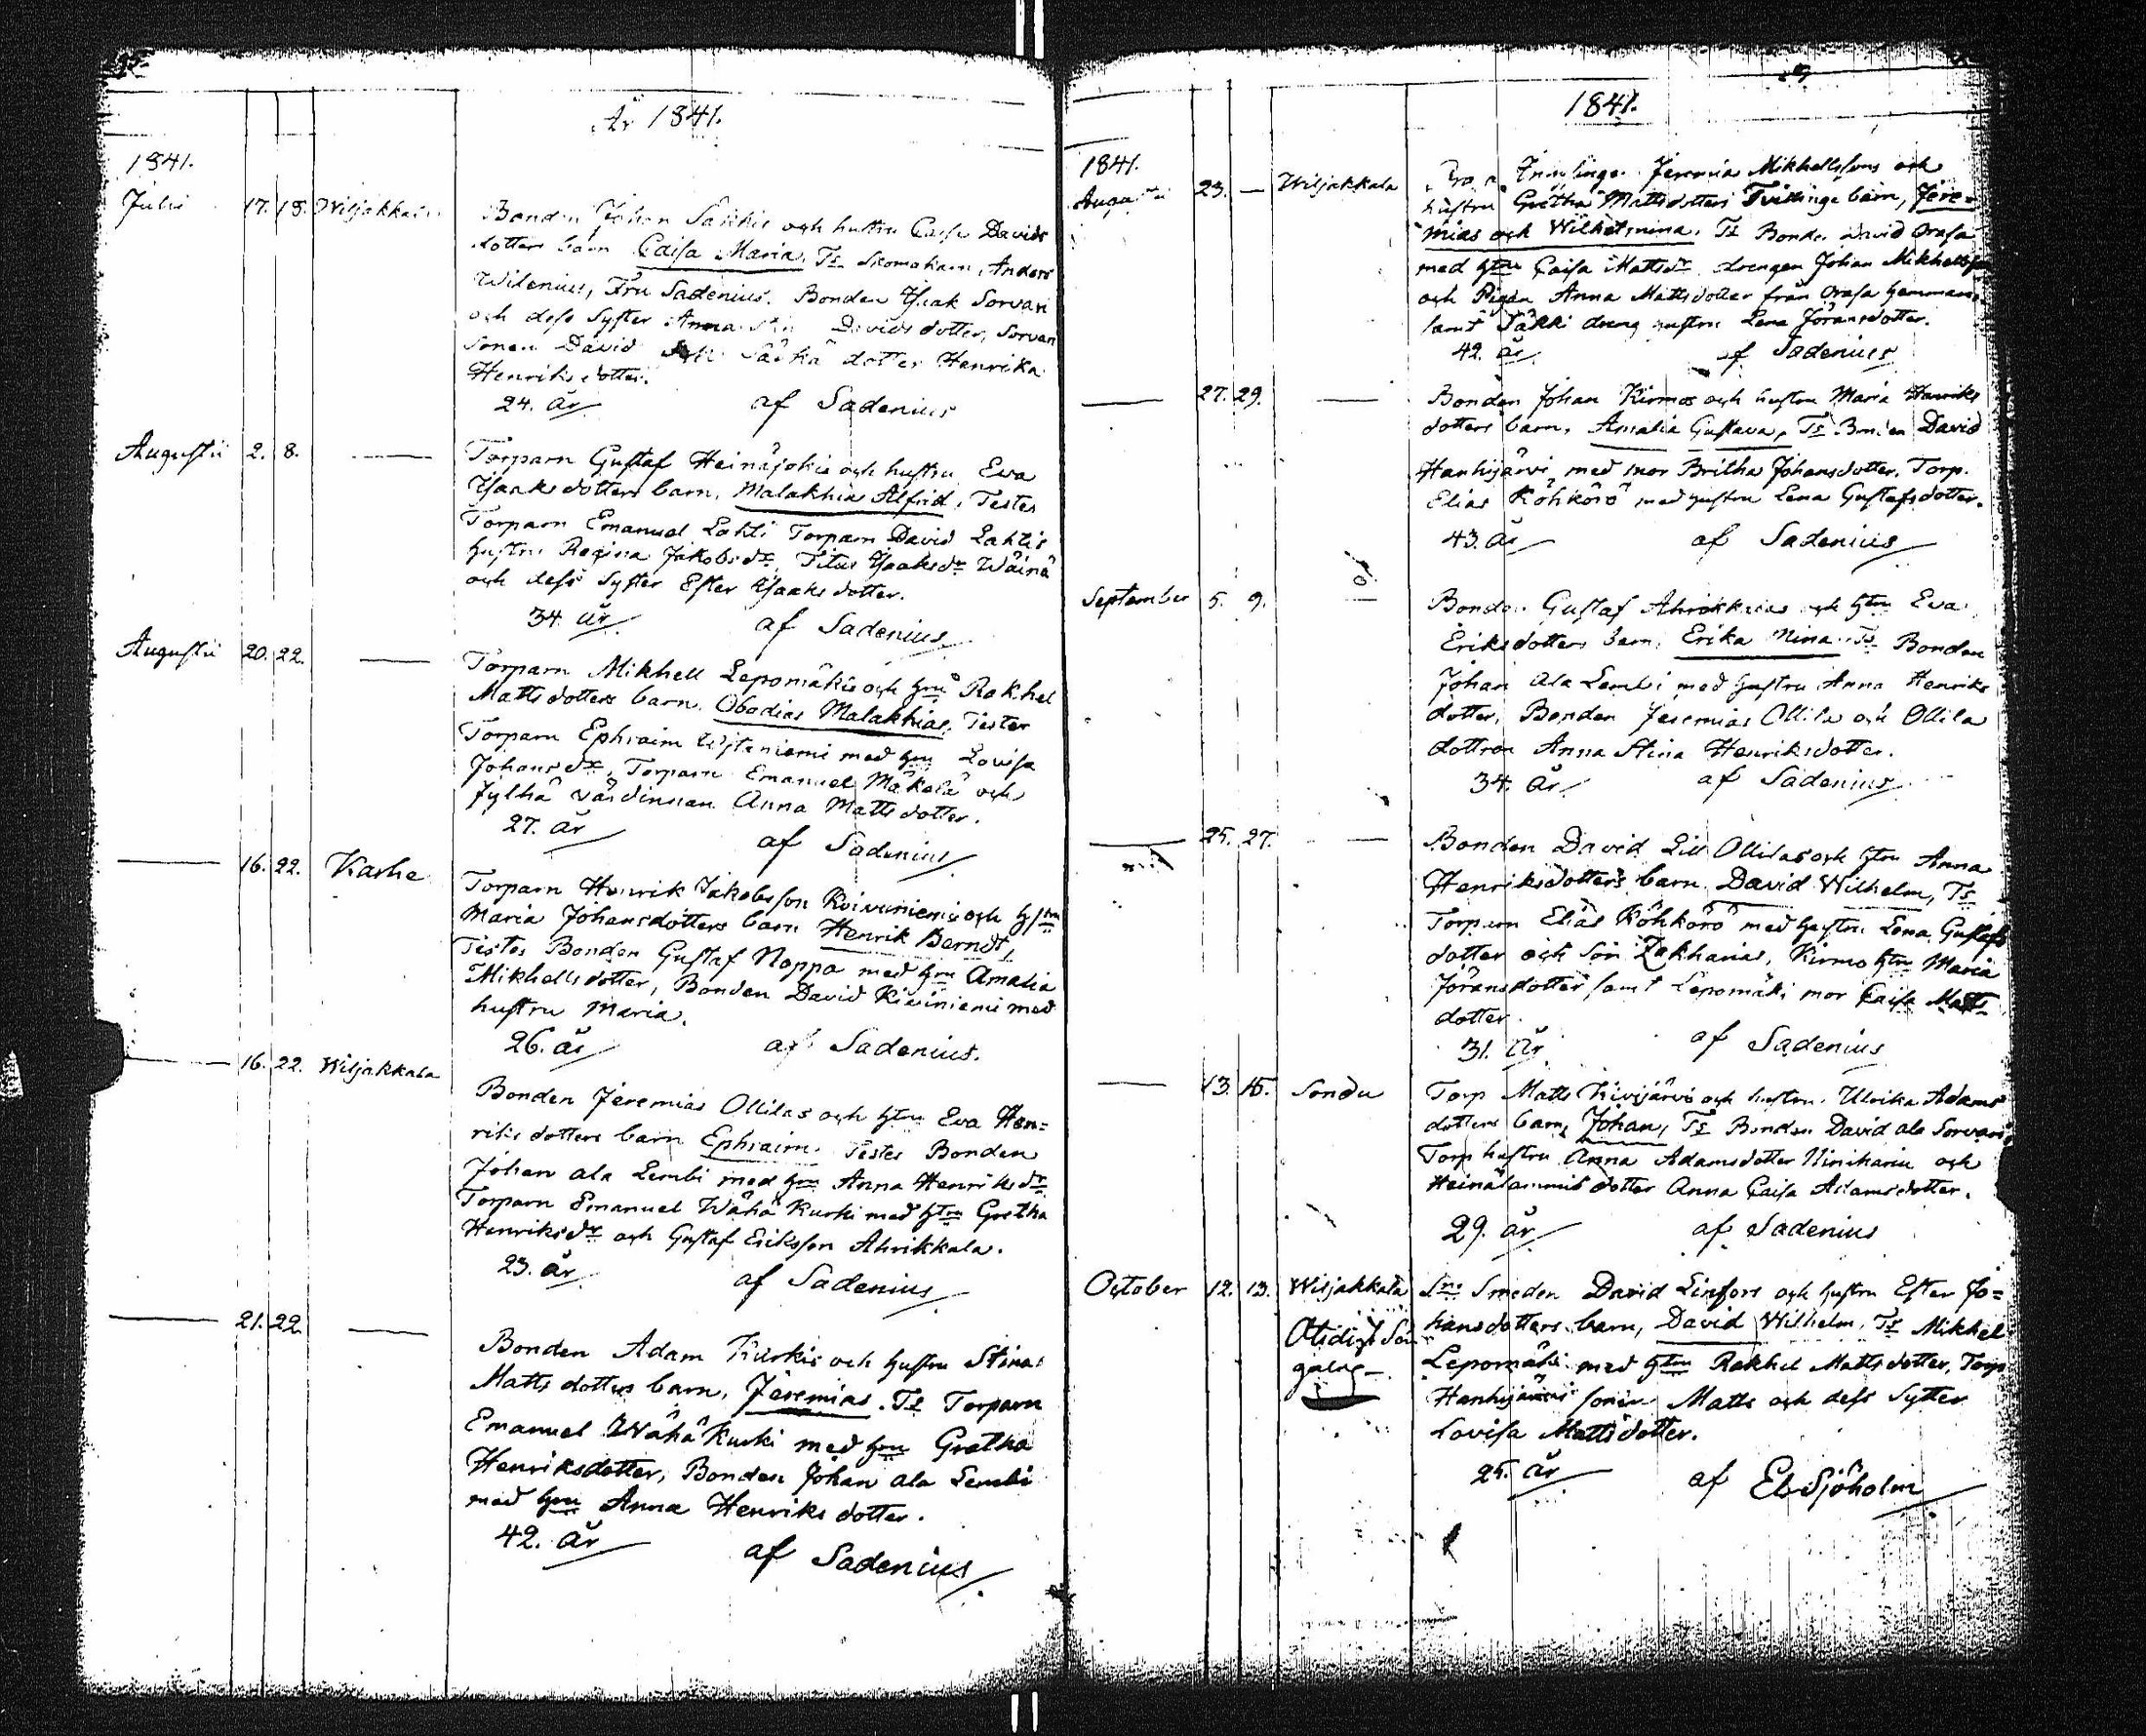 År 1841.
1841.
Julii 17. 18. Wiljakkala
Bonden Johan Sakkis och hustru Caisa Davids
dotters barn Caisa Maria, Ts Skomakarn, Anders
Widenius, Fru Sadenius. Bonden Isaak Sorvari
och dess Syster Anna Davids dotter, Sorvari
Sonen David dotter Henrika
Henriks dotter.
24. år af Sadenius
Augusti 2. 8. —
Torparn Gustaf Heinäjokis och hustru Eva
Isaaks dotters barn, Malakhia Alfrid, Testes
Torparn Emanuel Lahti Torparn David Lahtis
hustru Regina Jakobsdr, Titus Isaaksdr Wäinä
och dess Syster Ester Isaaks dotter.
34 år af Sadenius
Augusti 20. 22. —
Torparn Mikhell Lepomäkis och hru Rakhel
Matts dotters barn, Obadias Malakhias, Testes
Torparn Ephraim med hru Lovisa
Johansdr, Torparn Emanuel Mäkelä och
Jylhä värdinnan Anna Matts dotter.
27. år af Sadenius
— 16. 22. Karhe
Torparn Henrik Jakobsson Koivuniemis och hstru
Maria Johansdotters barn Henrik Berndt,
Testes Bonden Gustaf Noppa med hru Amalia
Mikhells dotter, Bonden David Kiviniemi med
hustru Maria.
26. år af Sadenius.
— 16. 22. Wiljakkala
Bonden Jeremias Ollilas och htru Eva Hen=
riks dotters barn Ephraim. Testes Bonden
Johan ala Lembi med hru Anna Henriksdr
Torparn Emanuel Wähä Kurki med htru Gretha
Henriksdr och Gustaf Eriksson Ahrikkala.
23. år af Sadenius
— 21. 22. —
Bonden Adam Kurkis och hustru Stina
Matts dotters barn, Jeremias. Ts Torparn
Emanuel Wähä Kurki med hru Gretha
Henriksdotter, Bonden Johan ala Lembi
med hru Anna Henriks dotter.
42. år af Sadenius
1841.
1841.
Augusti 23. — Wiljakkala
Inhysinge Jeremia Mikhellssons och
hustru Gretha Mattsdotters Tvillinge barn, Jere=
mias och Wilhelmina. Ts Bonden David Orasa
med hru Caisa Mattsdr, drengen Johan Mikhellsson
och Pigan Anna Matts dotter från Orasa hemman,
samt Säkki dreng hustru Lena Jöransdotter.
42. år af Sadenius
— 27. 29. —
Bonden Johan Kirmos och hustru Maria Henriks
dotters barn, Amalia Gustava, Ts Bonden David
Hanhijärvi med mor Britha Johansdotter, Torp.
Elias Köhkörö med hustru Lena Gustafsdotter.
43. år af Sadenius
September 5. 9. —
Bonden Gustaf Ahrikkalas och htru Eva
Eriksdotters barn, Erika Mina. Ts Bonden
Johan Ala Lembi med hustru Anna Henriks
dotter, Bonden Jeremias Ollila och Ollila
dottren Anna Stina Henriksdotter.
34. år af Sadenius
— 25. 27. —
Bonden David Lill Ollilas och htru Anna
Henriksdotters barn David Wilhelm, Ts
Torparn Elias Köhkörö med hustru Lena Gustafs
dotter och son Zakharias, Kirmo htru Maria
Jöransdotter samt Lepomäki mor Caisa Matts
dotter.
31. år af Sadenius
— 13. 15. Sondu
Torp Matts Kivijärvis och hustru Ulrika Adams
dotters barn, Johan, Ts Bonden David ala Sorvari,
Torp hustru Anna Adamsdotter Niniharju och
Heinälammis dotter Anna Caisa Adamsdotter.
29. år af Sadenius
October 12. 13. Wiljakkala
Smeden David Linfors och hustru Ester Jo=
hansdotters barn, David Wilhelm, Ts Mikhel
Lepomäki med htru Rakhel Matts dotter, Torp
Hanhijärvi sonen Matts och dess Syster
Lovisa Matts dotter.
25. år af Eb Sjöholm